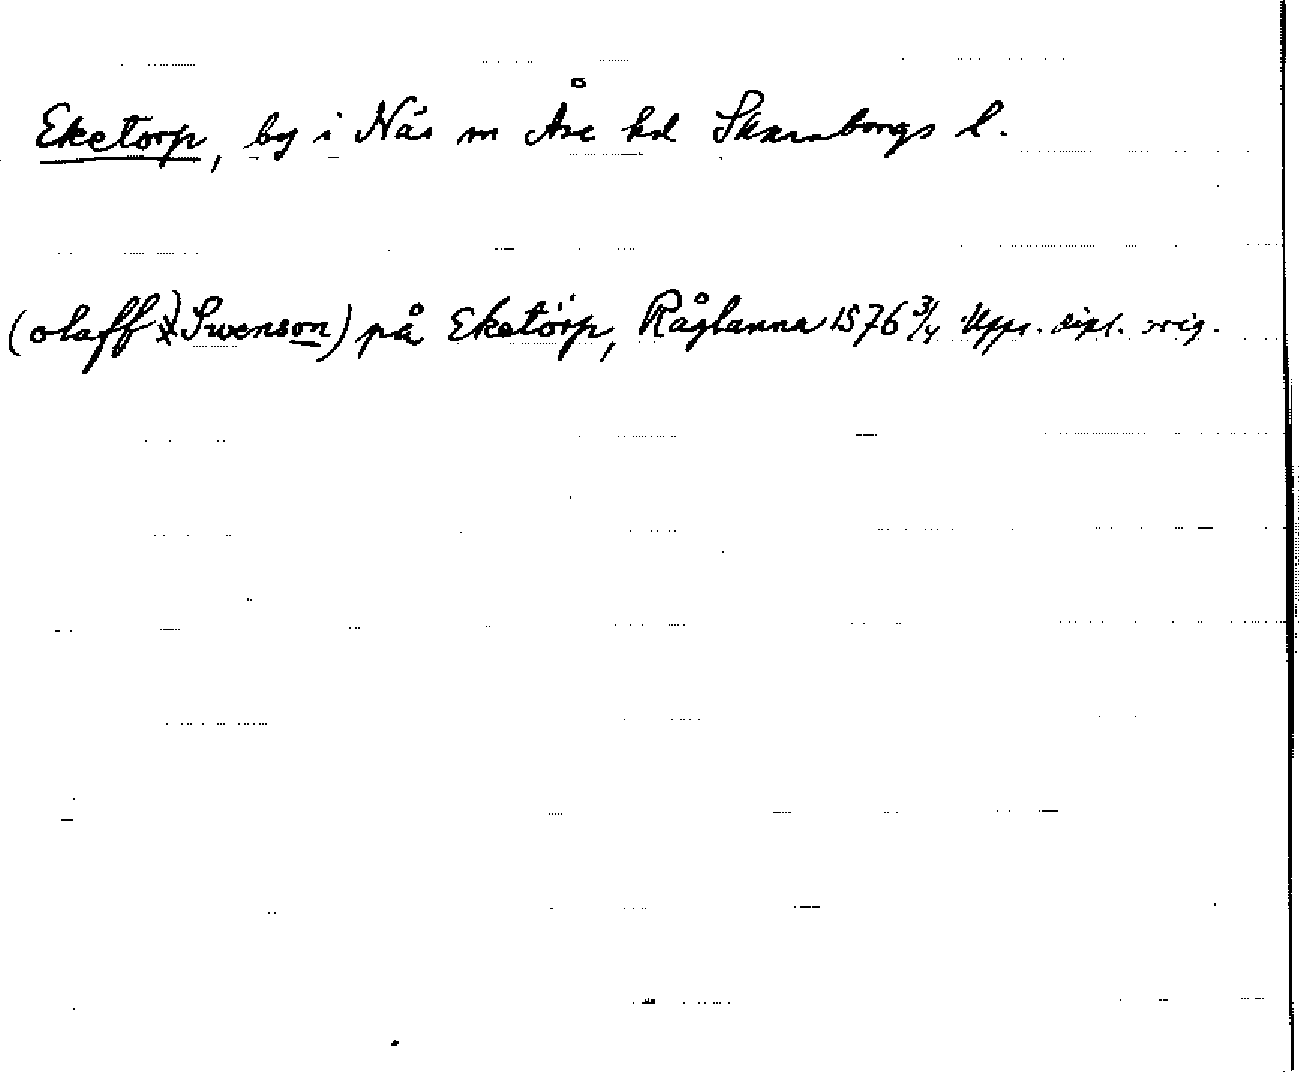 Eketorp, by i Näs sn Åse hd Skaraborgs l.
(olaff Swenson) på Eketörp, Råglanna 1576 3/4 Upps. dipl. orig.